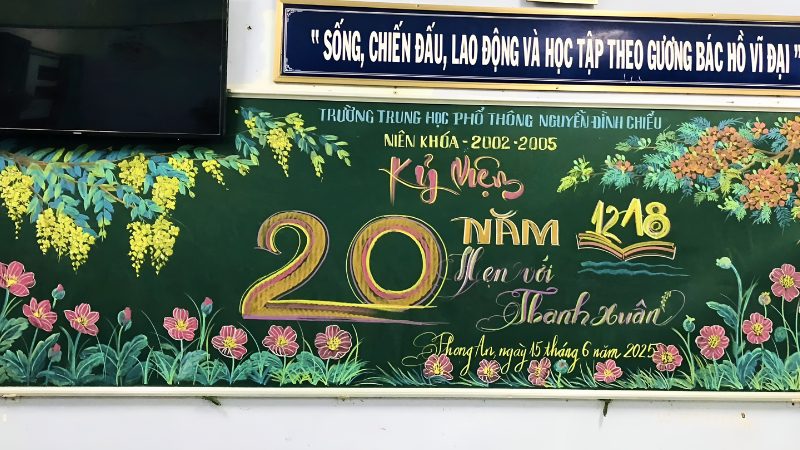 " SỐNG, CHIẾN ĐẤU, LAO ĐỘNG VÀ HỌC TẬP THEO GƯƠNG BÁC HỒ VĨ ĐẠI "
TRƯỜNG TRUNG HỌC PHỔ THÔNG NGUYỄN ĐÌNH CHIỂU
NIÊN KHÓA - 2002 - 2005
Kỷ Niệm
20 NĂM
12A8
Hẹn với
Thanh Xuân
Phong An, ngày 15 tháng 6 năm 2025